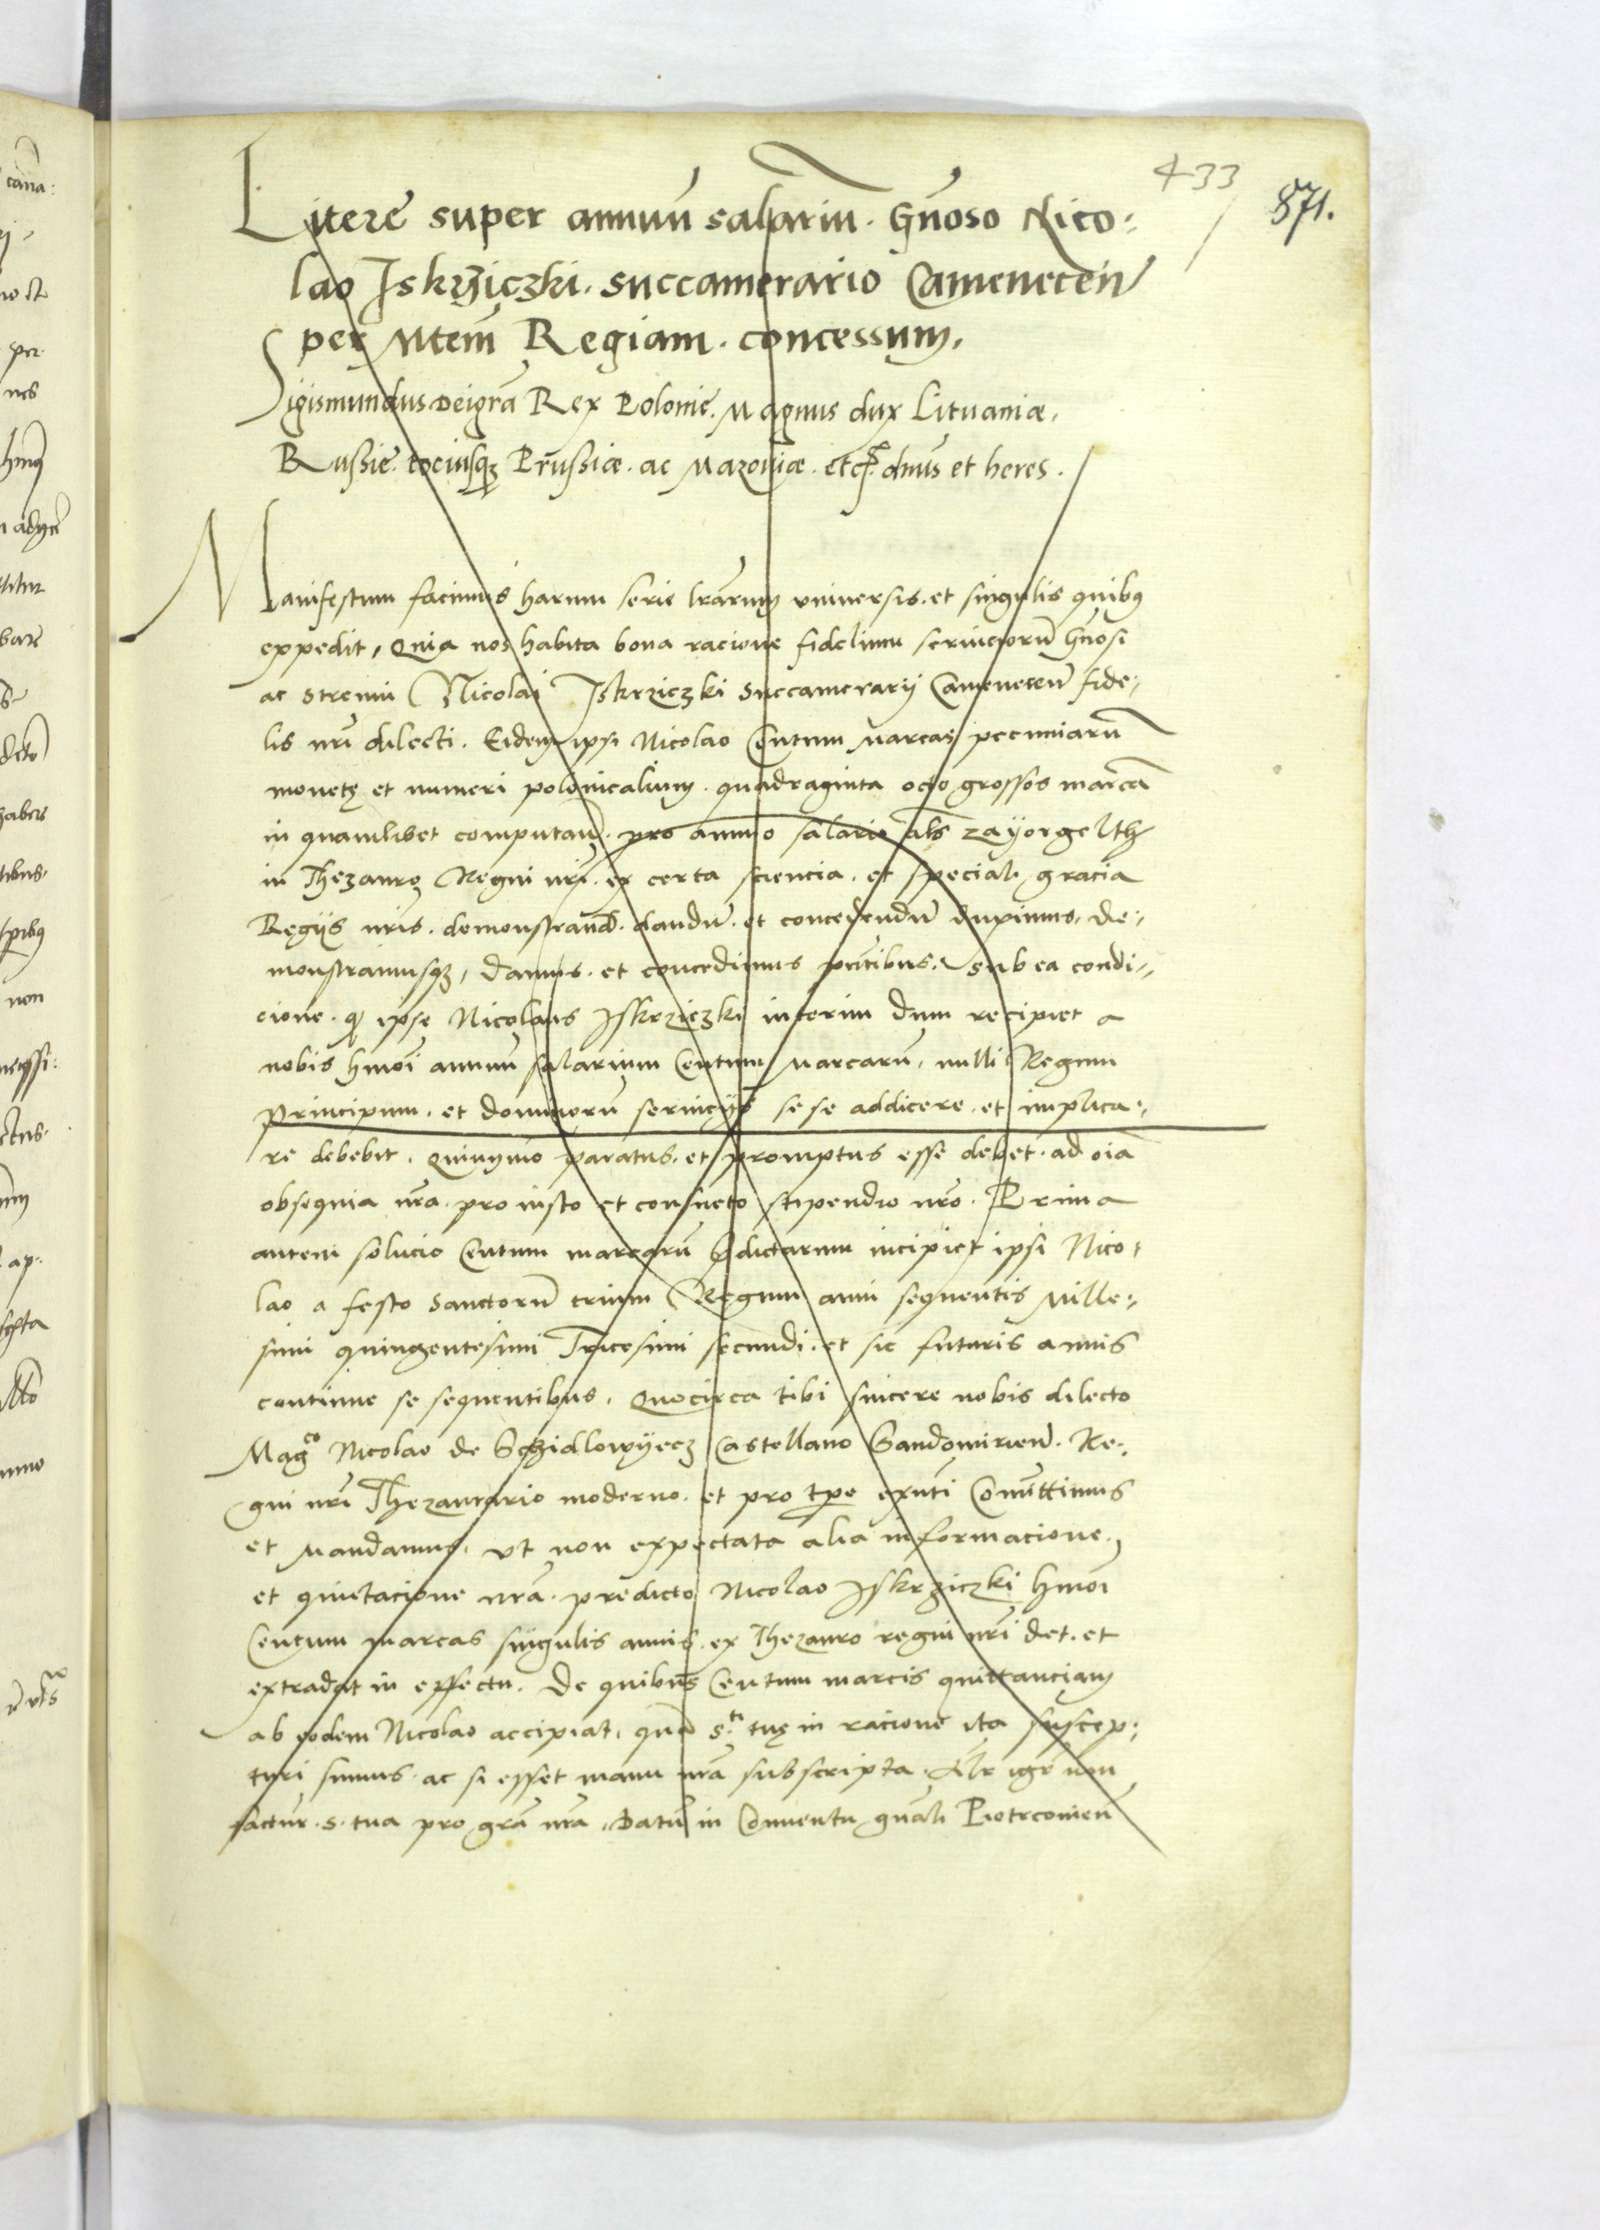 433
871.
Litere super annuu̅ salariu̅. G̅noso Nico:
lao Iskrziczki. succamerario Camenecen̅
per Mtem̅ Regiam. concessum.
Sigismundus Dei gra̅ Rex Polonie̅. Magnus dux Lituaniæ.
Russie̅. tociusq̃ Prussiæ. ac Mazoviæ. etc̃. dn̅us et heres.
Manifestum facimus harum serie lr̅arum universis. et singulis quibus
expedit, Quia nos habita bona racione fidelium serviciorum̅ G̅nosi
ac strenui Nicolai Iskrziczki succamerarij Camenecen̅ fide:
lis nr̅i dilecti. Eidem ipsi Nicolao Centum Marcas pecuniaru̅
monetę et numeri polonicalium. quadraginta octo grossos marca̅
in quamlibet computan̅. pro annuo salario al̅s zayorgelth
in Thezauro Regni nr̅i. ex certa sciencia. et speciali gracia
Regijs nr̅is. demonstrand̅. dandu̅. et concedendu̅ duximus. de:
monstramusq̃, damus. et concedimus pn̅tibus. sub ea condi:
cione. q̃ ipse Nicolaus Iskrziczki interim dum recipiet a
nobis hmo̅i annuu̅ salarium Centum Marcaru̅, nulli Regum
Principum. et dominoru̅ servicijs se se addicere. et implica:
re debebit. Quinymo paratus. et promptus esse debet. ad oi̅a
obsequia nr̅a. pro iusto et consueto stipendio nr̅o. Prima
autem solucio Centum marcaru̅ p̅dictarum incipiet ipsi Nico:
lao a festo Sanctoru̅ trium Regum anni sequentis Mille:
simi quingentesimi Tricesimi secundi. et sic futuris annis
continue se sequentibus. Quocirca tibi sincere nobis dilecto
Mag̅co Nicolao de Schidlowyecz Castellano Sandomirien̅. Re:
gni nr̅i Thezaurario moderno. et pro tp̅e exn̅ti Com̅ittimus
et Mandamus. ut non expectata alia informacione.
et quietacione nr̅a. predicto Nicolao Iskrziczki hmo̅i
Centum marcas singulis annis. ex Thezauro regni nr̅i det. et
extradat in effectu. De quibus Centum marcis quittanciam
ab eodem Nicolao accipiat. qua̅ S.ti tuę in racione ita suscep:
turi sumus. ac si esset manu nr̅a subscripta. Al̅r igr̅ non
factur̅. S. tua pro gra̅ nr̅a. Datu̅ in Conventu gn̅ali Piotrconien̅